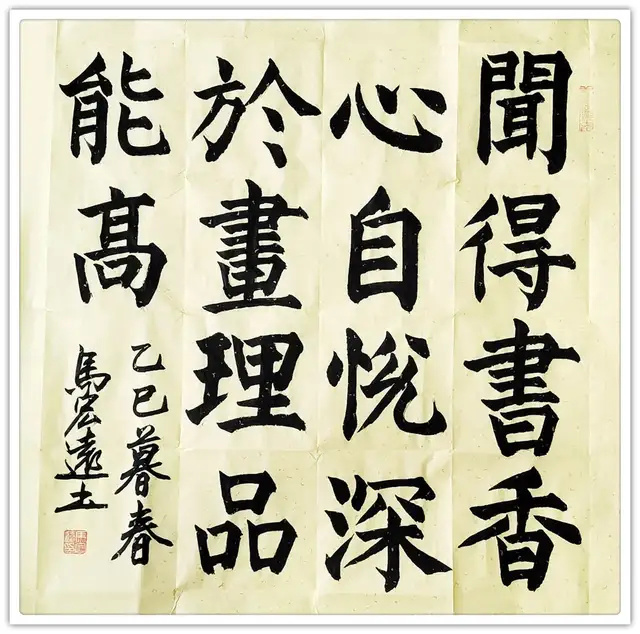 聞得書香
心自悅深
於畫理品
能高
乙巳暮春
馬宏遠土